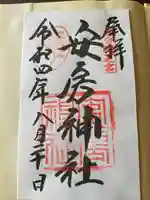 奉拝
安房神社
令和四年八月二十日